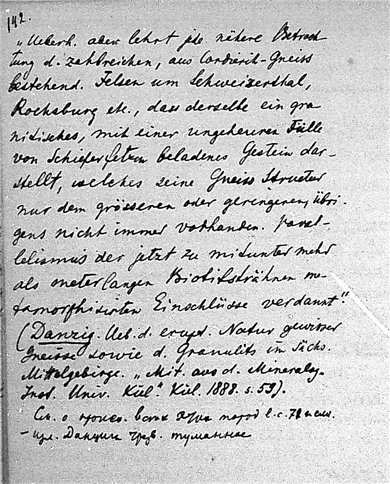 142.
„Ueberh. aber lehrt jede nähere Betrach
tung d. zahlreichen, aus Cordierit-Gneiss
bestehend. Felsen um Schweizerthal,
Rochsburg etc., dass derselbe ein gra
nitisches, mit einer ungeheuren Fülle
von Schieferfetzen beladenes Gestein dar-
stellt, welches seine Gneiss Structur
nur dem grösseren oder geringeren, übri-
gens nicht immer vorhanden. Paral-
lelismus der jetzt zu mitunter mehr
als meterlangen Biotitsträhnen me-
tamorphisirten Einschlüsse verdankt."
(Danzig. Ueb. d. erupt. Natur gewisser
Gneisse sowie d. Granulits im Sächs.
Mittelgebirge. „Mit. aus d. Mineralog.
Inst. Univ. Kiel." Kiel. 1888. s. 53).
См. о
пород l. c. 
Данцига туманное